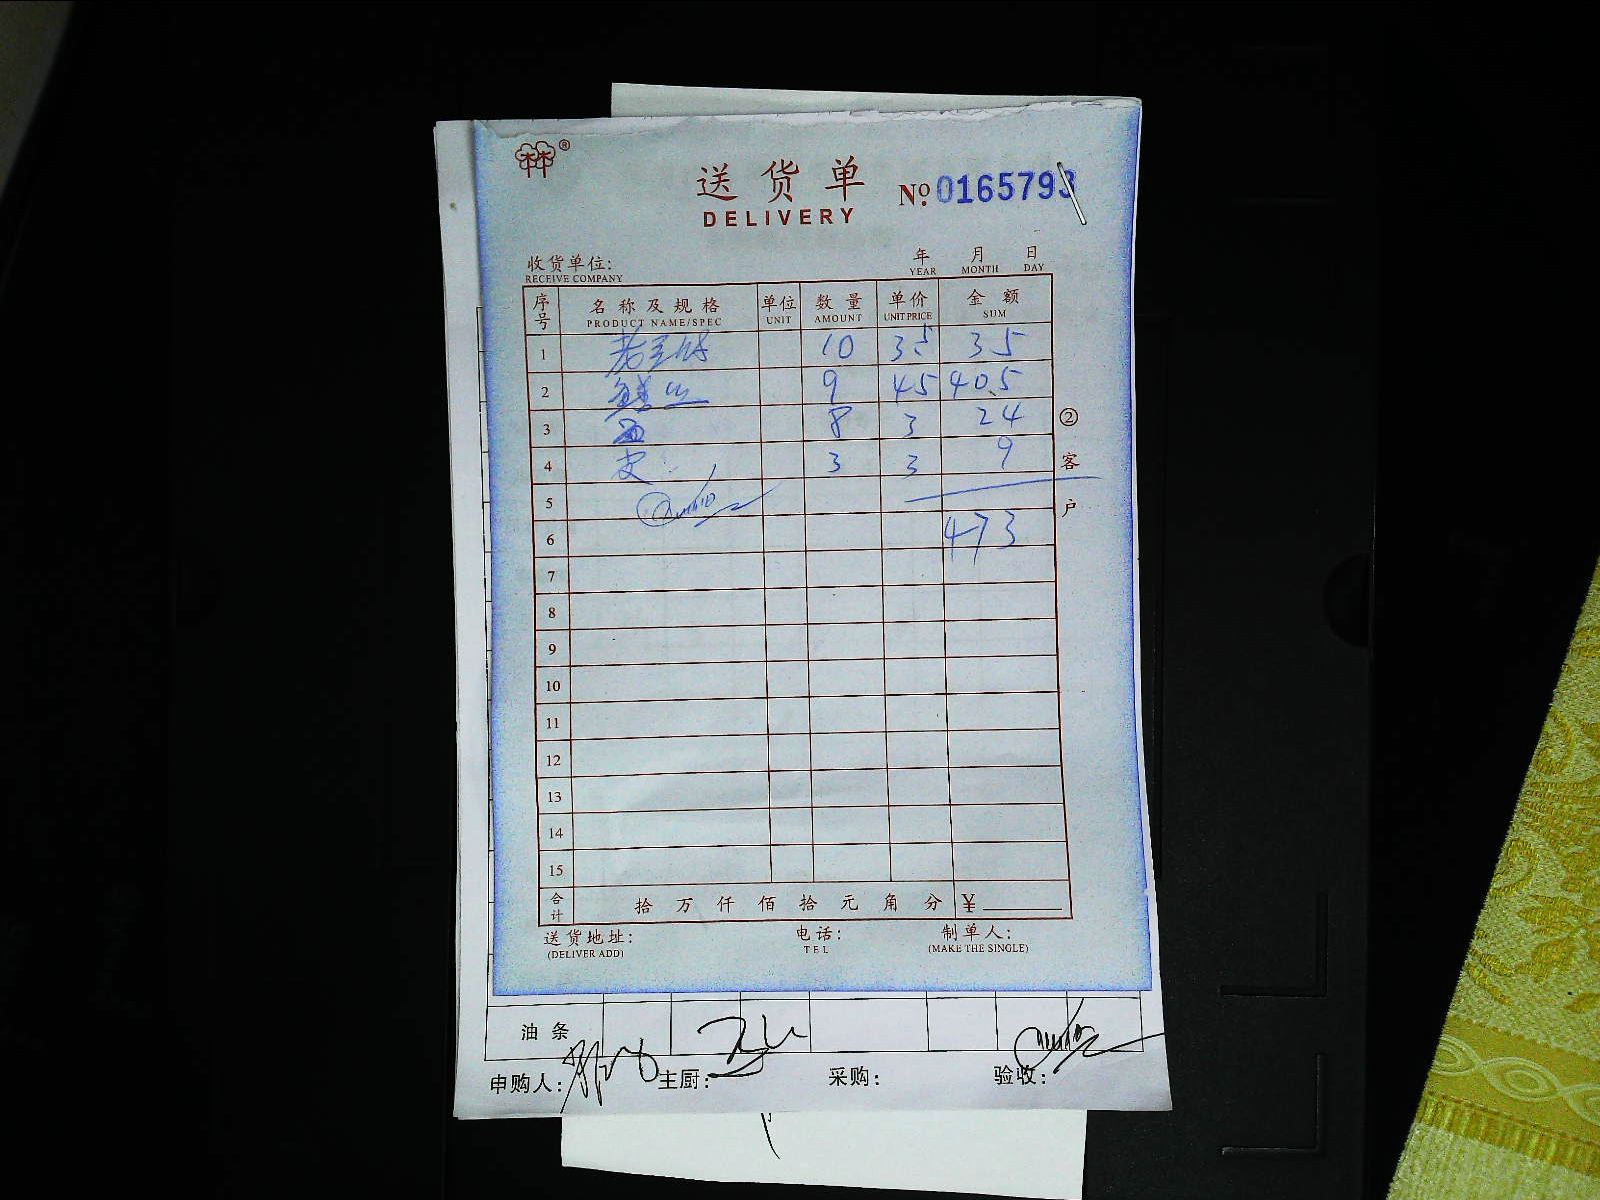 林林®
送货单
DELIVERY
№ 0165793
收货单位:
RECEIVE COMPANY
年 月 日
YEAR MONTH DAY
序号 名称及规格 单位 数量 单价 金额
PRODUCT NAME/SPEC UNIT AMOUNT UNIT PRICE SUM
1 10 3.5 35
2 鳝 9 45 405
3 8 3 24
4 皮 3 3 9
5
6 473
7
8
9
10
11
12
13
14
15
合计 拾 万 仟 佰 拾 元 角 分 ¥
送货地址: 电话: 制单人:
(DELIVER ADD) TEL (MAKE THE SINGLE)
② 客户
油条
申购人: 主厨: 采购: 验收: